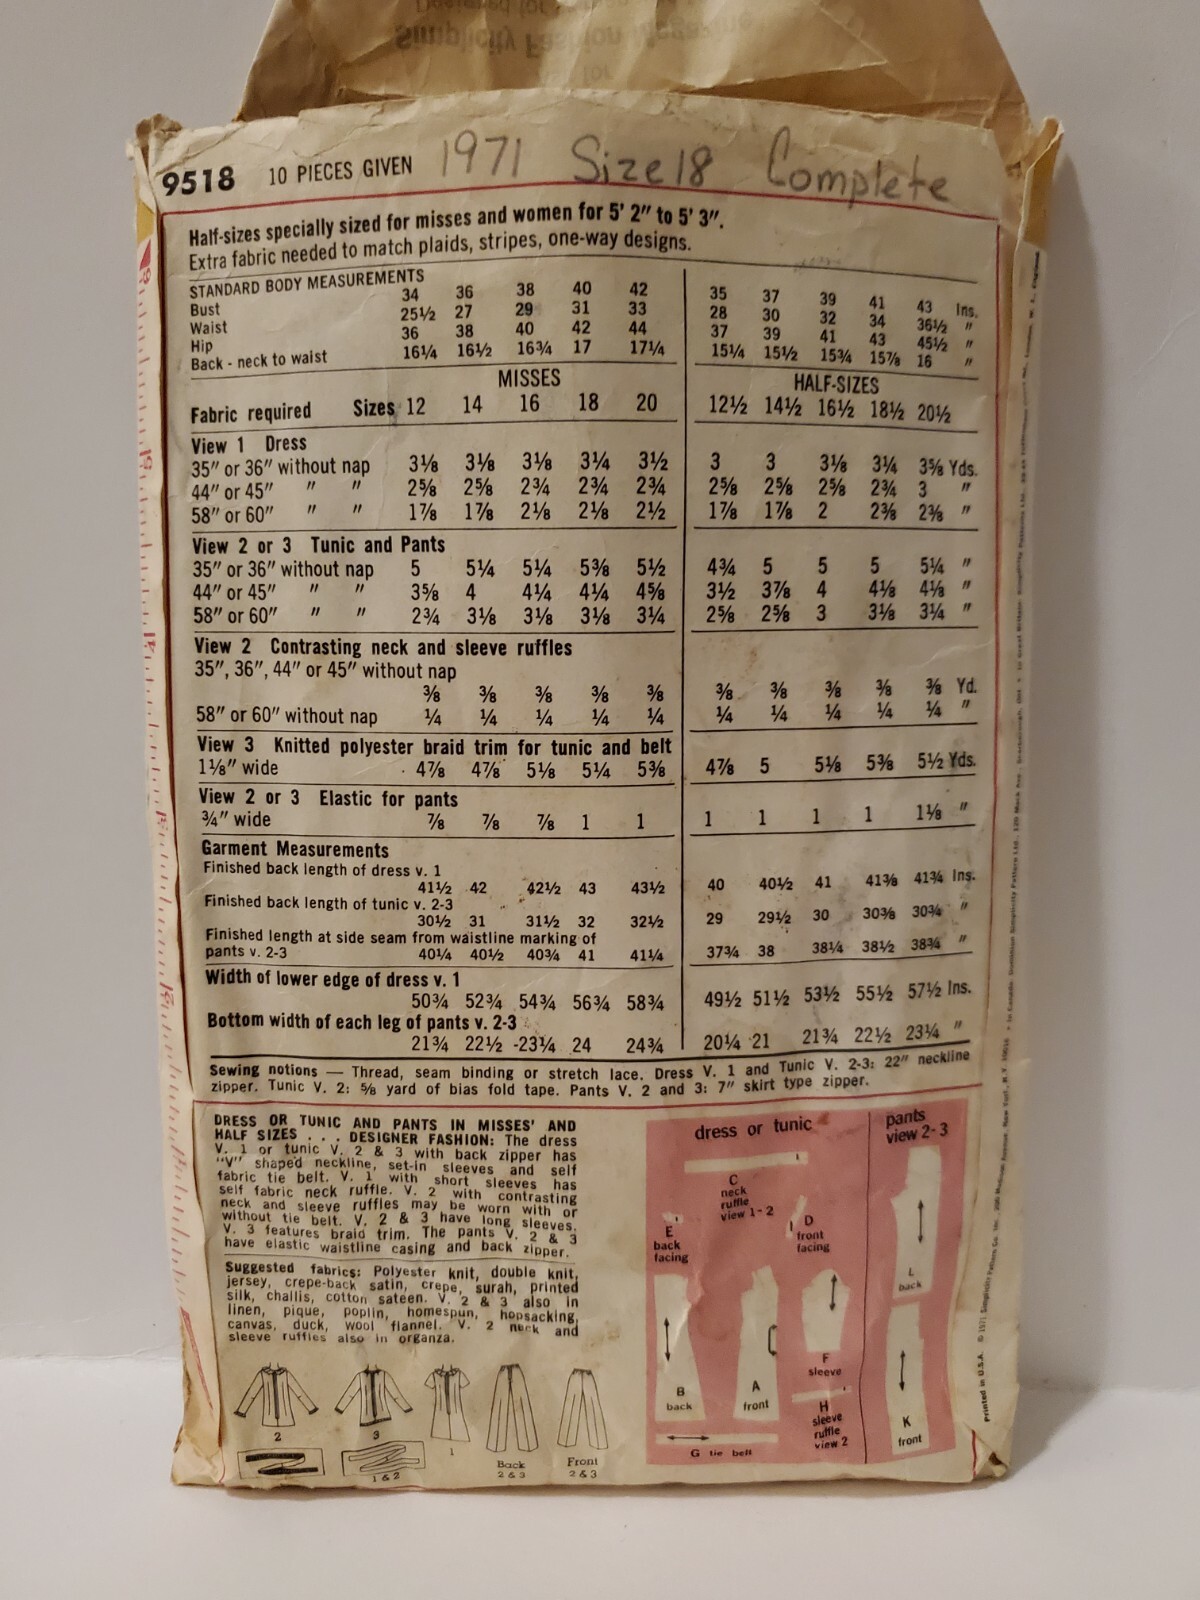 9518 10 PIECES GIVEN 1971 Size 18 Complete
Half-sizes specially sized for misses and women for 5' 2" to 5' 3".
Extra fabric needed to match plaids, stripes, one-way designs.
STANDARD BODY MEASUREMENTS
Bust 34 36 38 40 42 35 37 39 41 43 Ins.
Waist 25½ 27 29 31 33 28 30 32 34 36½ "
Hip 36 38 40 42 44 37 39 41 43 45½ "
Back - neck to waist 16¼ 16½ 16¾ 17 17¼ 15¼ 15½ 15¾ 15⅞ 16 "
MISSES HALF-SIZES
Fabric required Sizes 12 14 16 18 20 12½ 14½ 16½ 18½ 20½
View 1 Dress
35" or 36" without nap 3⅛ 3⅛ 3⅛ 3¼ 3½ 3 3 3⅛ 3¼ 3⅜ Yds.
44" or 45" " " 2⅝ 2⅝ 2¾ 2¾ 2¾ 2⅝ 2⅝ 2⅝ 2¾ 3 "
58" or 60" " " 1⅞ 1⅞ 2⅛ 2⅛ 2½ 1⅞ 1⅞ 2 2⅜ 2⅜ "
View 2 or 3 Tunic and Pants
35" or 36" without nap 5 5¼ 5¼ 5⅜ 5½ 4¾ 5 5 5 5¼ "
44" or 45" " " 3⅝ 4 4¼ 4¼ 4⅝ 3½ 3⅞ 4 4⅛ 4⅛ "
58" or 60" " " 2¾ 3⅛ 3⅛ 3⅛ 3¼ 2⅝ 2⅝ 3 3⅛ 3¼ "
View 2 Contrasting neck and sleeve ruffles
35", 36", 44" or 45" without nap
⅜ ⅜ ⅜ ⅜ ⅜ ⅜ ⅜ ⅜ ⅜ ⅜ Yd.
58" or 60" without nap ¼ ¼ ¼ ¼ ¼ ¼ ¼ ¼ ¼ ¼ "
View 3 Knitted polyester braid trim for tunic and belt
1⅛" wide 4⅞ 4⅞ 5⅛ 5¼ 5⅜ 4⅞ 5 5⅛ 5⅜ 5½ Yds.
View 2 or 3 Elastic for pants
¾" wide ⅞ ⅞ ⅞ 1 1 1 1 1 1 1⅛ "
Garment Measurements
Finished back length of dress v. 1
41½ 42 42½ 43 43½ 40 40½ 41 41⅜ 41¾ Ins.
Finished back length of tunic v. 2-3
30½ 31 31½ 32 32½ 29 29½ 30 30⅜ 30¾ "
Finished length at side seam from waistline marking of
pants v. 2-3 40¼ 40½ 40¾ 41 41¼ 37¾ 38 38¼ 38½ 38¾ "
Width of lower edge of dress v. 1
50¾ 52¾ 54¾ 56¾ 58¾ 49½ 51½ 53½ 55½ 57½ Ins.
Bottom width of each leg of pants v. 2-3
21¾ 22½ 23¼ 24 24¾ 20¼ 21 21¾ 22½ 23¼ "
Sewing notions — Thread, seam binding or stretch lace. Dress V. 1 and Tunic V. 2-3: 22" neckline
zipper. Tunic V. 2: ⅝ yard of bias fold tape. Pants V. 2 and 3: 7" skirt type zipper.
DRESS OR TUNIC AND PANTS IN MISSES' AND
HALF SIZES . . . DESIGNER FASHION: The dress
V. 1 or tunic V. 2 & 3 with back zipper has
"V" shaped neckline, set-in sleeves and self
fabric tie belt. V. 1 with short sleeves has
self fabric neck ruffle. V. 2 with contrasting
neck and sleeve ruffles may be worn with or
without tie belt. V. 2 & 3 have long sleeves.
V. 3 features braid trim. The pants V. 2 & 3
have elastic waistline casing and back zipper.
Suggested fabrics: Polyester knit, double knit,
jersey, crepe-back satin, crepe, surah, printed
silk, challis, cotton sateen. V. 2 & 3 also in
linen, pique, poplin, homespun, hopsacking,
canvas, duck, wool flannel. V. 2 neck and
sleeve ruffles also in organza.
2
3
1
1 & 2
Back
2 & 3
Front
2 & 3
dress or tunic
C
neck
ruffle
view 1-2
E
back
facing
D
front
facing
B
back
A
front
F
sleeve
H
sleeve
ruffle
view 2
G tie belt
pants
view 2-3
L
back
K
front
Printed in U.S.A. © 1971 Simplicity Pattern Co. Inc.